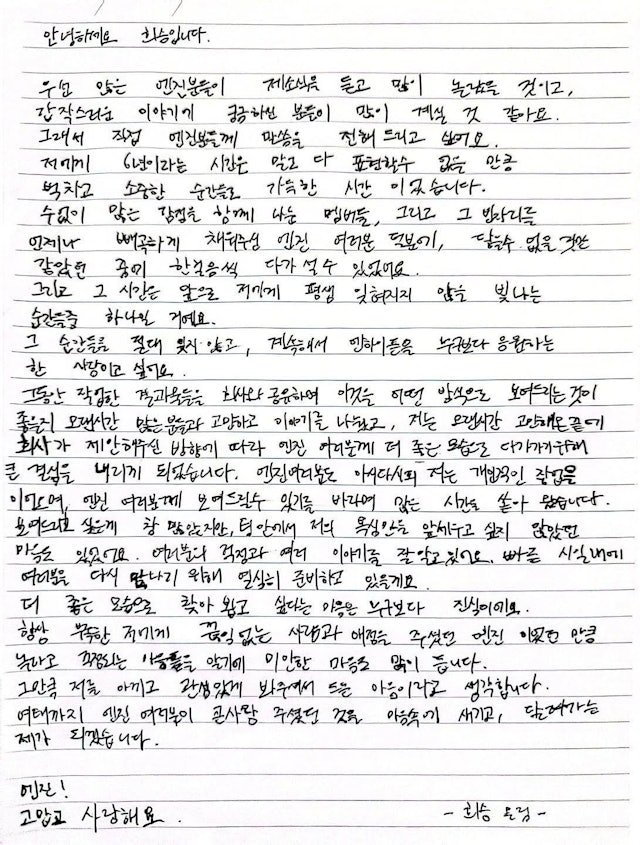 안녕하세요 희승입니다.
우선 많은 엔진분들이 제소식을 듣고 많이 놀랐을 것이고,
갑작스러운 이야기에 궁금하신 분들이 많이 계실 것 같아요.
그래서 직접 엔진분들께 말씀을 전해 드리고 싶어요.
저에게 6년이라는 시간은 말로 다 표현할수 없을 만큼
벅차고 소중한 순간들로 가득한 시간 이었습니다.
수없이 많은 감정을 함께 나눈 멤버들, 그리고 그 빈자리를
언제나 빼곡하게 채워주신 엔진 여러분 덕분에, 닿을수 없을 것만
같았던 꿈에 한걸음씩 다가 설 수 있었어요.
그리고 그 시간은 앞으로 저에게 평생 잊혀지지 않을 빛나는
순간들중 하나일 거에요.
그 순간들을 절대 잊지 않고, 계속해서 엔하이픈을 누구보다 응원하는
한 사람이고 싶어요.
그동안 작업한 결과물들을 회사와 공유하며 이것을 어떤 방식으로 보여드리는 것이
좋을지 오랜시간 많은분들과 고민하고 이야기를 나눴고, 저는 오랜시간 고민해온 끝에
회사가 제안해주신 방향에 따라 엔진 여러분께 더 좋은 모습으로 다가가기 위해
큰 결심을 내리게 되었습니다. 엔진여러분도 아시다시피 저는 개인적인 작업을
이어오며, 엔진 여러분께 보여드릴수 있기를 바라며 많은 시간을 쏟아 왔습니다.
보여드리고 싶은게 참 많았지만, 팀 안에서 저의 욕심만을 앞세우고 싶지 않았던
마음도 있었어요. 여러분의 걱정과 여러 이야기를 잘 알고 있어요. 빠른 시일내에
여러분을 다시 만나기 위해 열심히 준비하고 있을게요.
더 좋은 모습으로 찾아 뵙고 싶다는 마음은 누구보다 진심이에요.
항상 부족한 저에게 끊임 없는 사랑과 애정을 주셨던 엔진 이었던 만큼
놀라고 걱정되는 마음들을 알기에 미안한 마음도 많이 듭니다.
그만큼 저를 아끼고 관심있게 봐주셔서 드는 마음이라고 생각합니다.
여태까지 엔진 여러분이 주셨던 것을 마음속에 새기고, 달려가는
제가 되겠습니다.
엔진!
고맙고 사랑해요.
- 희승 드림 -